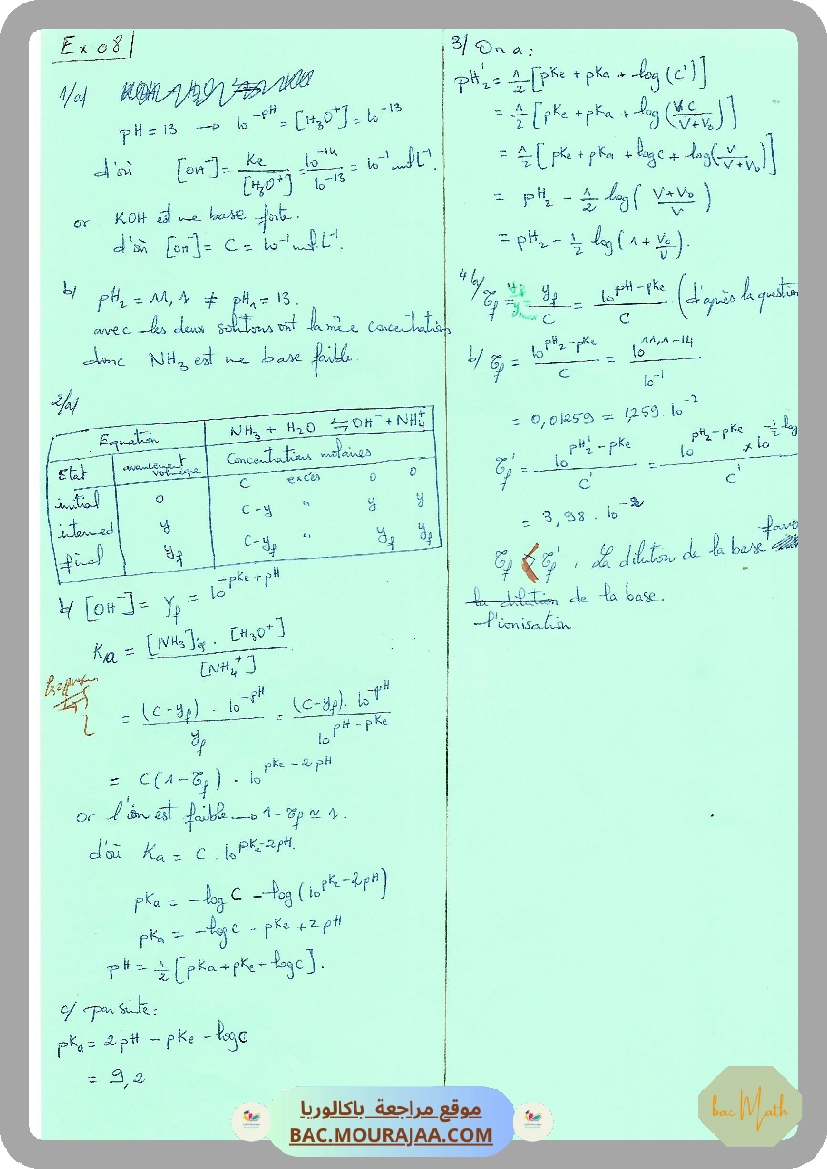 Ex 08
1/a)
pH = 13 → 10^-pH = [H3O+] = 10^-13
d'où [OH-] = Ke/[H3O+] = 10^-14/10^-13 = 10^-1 mol.L^-1.
or KOH est une base forte.
d'où [OH-] = C = 10^-1 mol.L^-1.
b/ pH2 = 11,1 ≠ pH1 = 13.
avec les deux solutions ont la même concentration
donc NH3 est une base faible.
2/a)
Equation NH3 + H2O ⇋ OH- + NH4+
Etat avancement volumique Concentrations molaires
initial 0 C excès 0 0
intermed y C-y " y y
final yf C-yf " yf yf
b/ [OH-] = yf = 10^(-pKe+pH)
Ka = [NH3]éq . [H3O+] / [NH4+]
= (C-yf) . 10^-pH / yf = (C-yf) . 10^-pH / 10^(pH-pKe)
= C(1-τf) . 10^(pKe-2pH)
or l'ion est faible → 1-τf ≃ 1.
d'où Ka = C . 10^(pKe-2pH).
pKa = -log C - log(10^(pKe-2pH))
pKa = -log C - pKe + 2pH
pH = 1/2 [pKa + pKe + log C].
c/ par suite:
pKa = 2pH - pKe - log C
= 9,2
3/ On a:
pH'2 = 1/2 [pKe + pKa + log(C')]
= 1/2 [pKe + pKa + log(VC/(V+V0))]
= 1/2 [pKe + pKa + log C + log(V/(V+V0))]
= pH2 - 1/2 log((V+V0)/V)
= pH2 - 1/2 log(1 + V0/V).
τf = yf/C = 10^(pH-pKe)/C (d'après la question
b/ τf = 10^(pH2-pKe)/C = 10^(11,1-14)/10^-1
= 0,01259 = 1,259.10^-2
τ'f = 10^(pH'2-pKe)/C' = 10^(pH2-pKe) × 10^(-1/2 log / C'
= 3,98 . 10^-2
τf < τ'f. La dilution de la base favo
la dilution de la base.
l'ionisation
موقع مراجعة باكالوريا
BAC.MOURAJAA.COM
bac Math